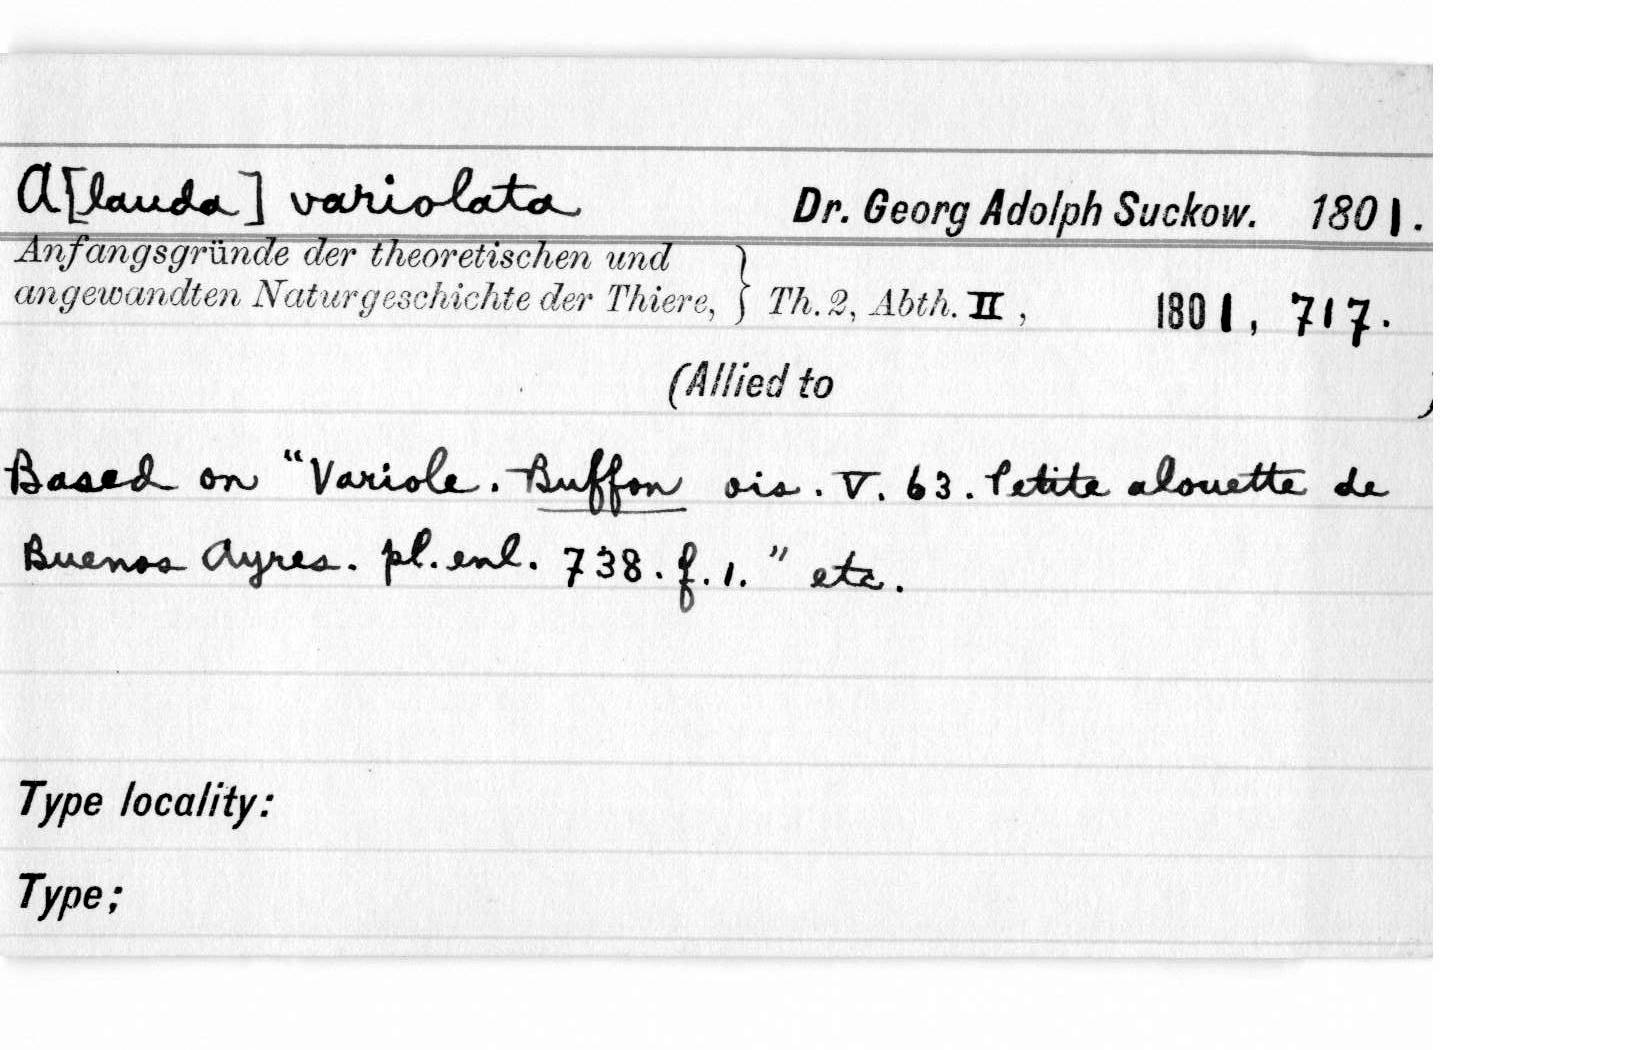 A[lauda] variolata Dr. Georg Adolph Suckow. 1801.
Anfangsgründe der theoretischen und
angewandten Naturgeschichte der Thiere, } Th. 2, Abth. II, 1801, 717.
(Allied to )
Based on "Variole. Buffon ois. V. 63. Petite alouette de
Buenos Ayres. pl. enl. 738. f. 1." etc.
Type locality:
Type;